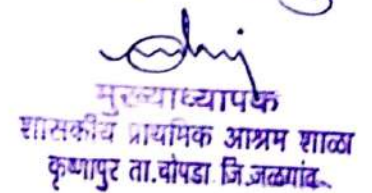 मुख्याध्यापक
शासकीय प्राथमिक आश्रम शाळा
कृष्णापुर ता.चोपडा जि.जळगांव.